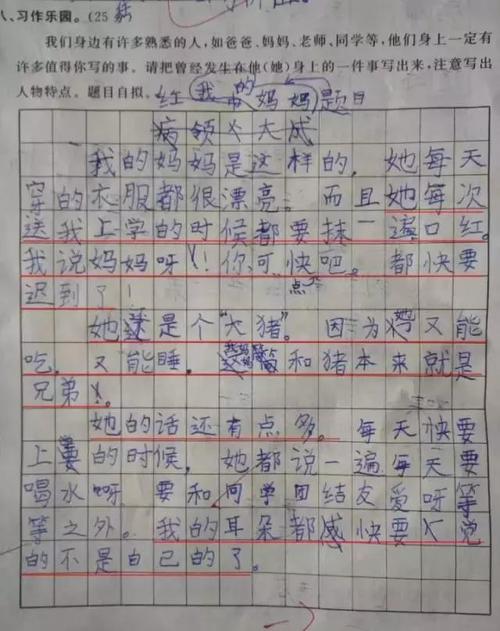 八、习作乐园。(25
我们身边有许多熟悉的人,如爸爸、妈妈、老师、同学等,他们身上一定有
许多值得你写的事。请把曾经发生在他(她)身上的一件事写出来,注意写出
人物特点。题目自拟。
我的妈妈
题目
我的妈妈是这样的,她每天
穿的衣服都很漂亮。而且她每次
送我上学的时候都要抹一遍口红。
我说妈妈呀!你可快点吧。都快要
迟到了!
她还是个“大猪”。因为她又能
吃,又能睡,和猪本来就是
兄弟。
她的话还有点多。每天快要
上学的时候,她都说一遍每天要
喝水呀要和同学团结友爱呀等
等之外。我的耳朵都感快要不觉
的不是自己的了。